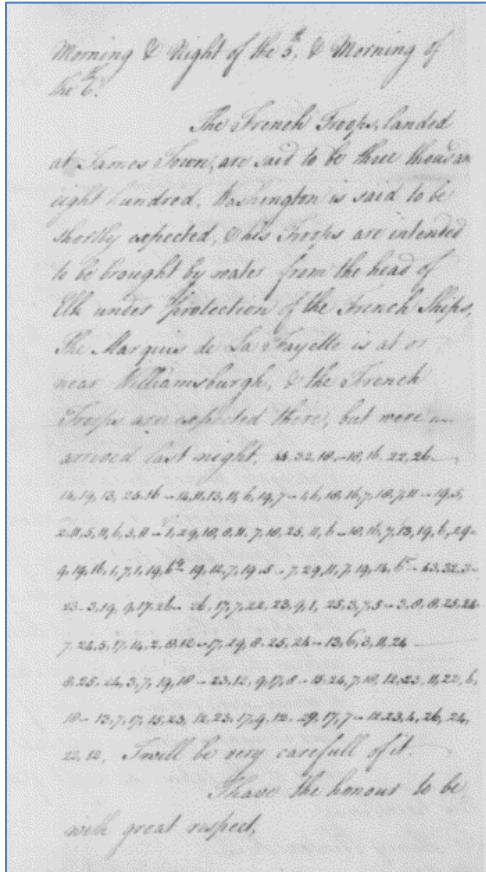 Morning & Night of the 5th, & Morning of
the 6th.
The French Troops, landed
at James Town, are said to be three thousan
eight hundred. Washington is said to be
shortly expected, & his Troops are intended
to be brought by water from the head of
Elk under protection of the French Ships,
The Marquis de La Fayette is at or
near Williamsburgh, & the French
Troops are expected there, but were
arrived last night. 32.18.-10.16.22.26
14.19.13. 26.16 - 14.11.13.11.6.19.7 - 18.16.7.18.7.11 - 19.5.
2.11.5.11.6.3.11 - 1.29.10.8.11.7.10.25.11.6 - 10.16.7.13.19.6.29-
9.19.16.1.7.1.19.6 - 19.12.7.19.5 - 7.29.11.7.19.14.6 - 43.32.3-
23-3.19.9.17.26 - 26.17.7.22.23.9.1.25.3.7.5 - 3.8.8.25.24
7.24.5.17.14.2.8.12 - 17.29.8.25.24 - 13.6.3.11.24
8.25.24.3.7.19.18 - 23.12.9.17.8 - 15.24.7.18.12.23.11.22.6.
18 - 13.7.17.15.23.12.23.17.9.12. 29.17.7 - 12.23.4.26.24.
22.12. I will be very carefull of it.
I have the honour to be
with great respect,